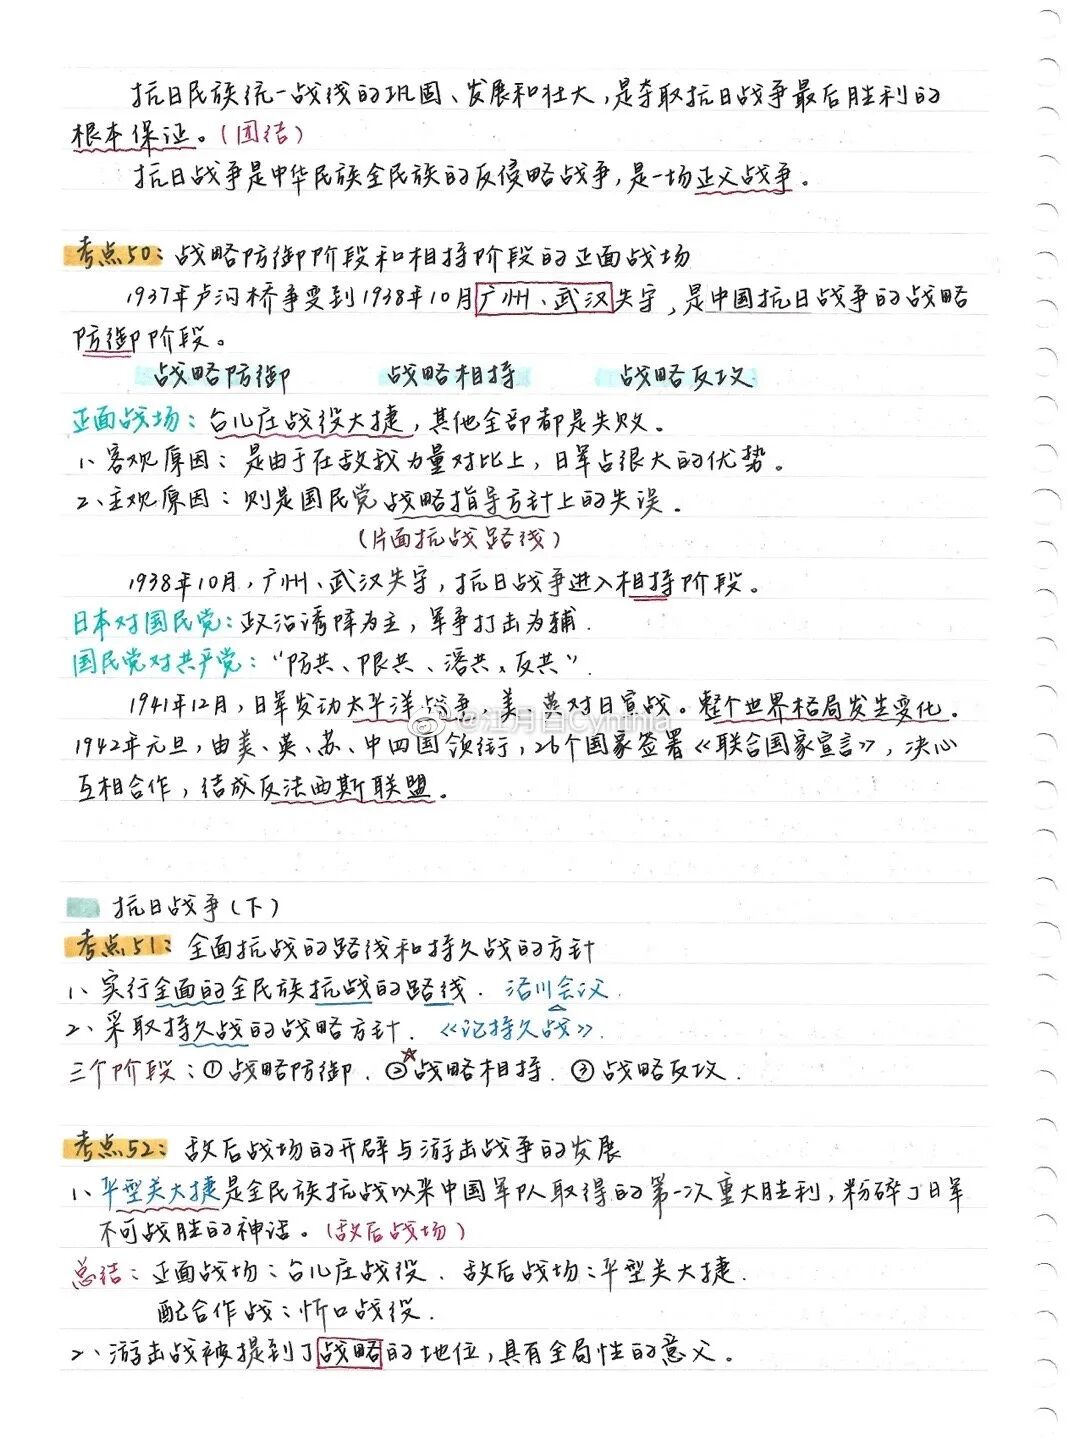 抗日民族统一战线的巩固、发展和壮大，是夺取抗日战争最后胜利的
根本保证。（团结）
抗日战争是中华民族全民族的反侵略战争，是一场正义战争。
考点50：战略防御阶段和相持阶段的正面战场
1937年卢沟桥事变到1938年10月广州、武汉失守，是中国抗日战争的战略
防御阶段。
战略防御 战略相持 战略反攻
正面战场：台儿庄战役大捷，其他全部都是失败。
1、客观原因：是由于在敌我力量对比上，日军占很大的优势。
2、主观原因：则是国民党战略指导方针上的失误。
（片面抗战路线）
1938年10月，广州、武汉失守，抗日战争进入相持阶段。
日本对国民党：政治诱降为主，军事打击为辅.
国民党对共产党：“防共、限共、溶共、反共”.
1941年12月，日军发动太平洋战争，美、英对日宣战。整个世界格局发生变化。
@江月白Cynthia
1942年元旦，由美、英、苏、中四国领衔，26个国家签署《联合国家宣言》，决心
互相合作，结成反法西斯联盟。
抗日战争（下）
考点51：全面抗战的路线和持久战的方针
1、实行全面的全民族抗战的路线. 洛川会议.
2、采取持久战的战略方针. 《论持久战》.
三个阶段：①战略防御. ②战略相持. ③战略反攻.
考点52：敌后战场的开辟与游击战争的发展
1、平型关大捷是全民族抗战以来中国军队取得的第一次重大胜利，粉碎了日军
不可战胜的神话。（敌后战场）
总结：正面战场：台儿庄战役. 敌后战场：平型关大捷.
配合作战：忻口战役.
2、游击战被提到了战略的地位，具有全局性的意义。